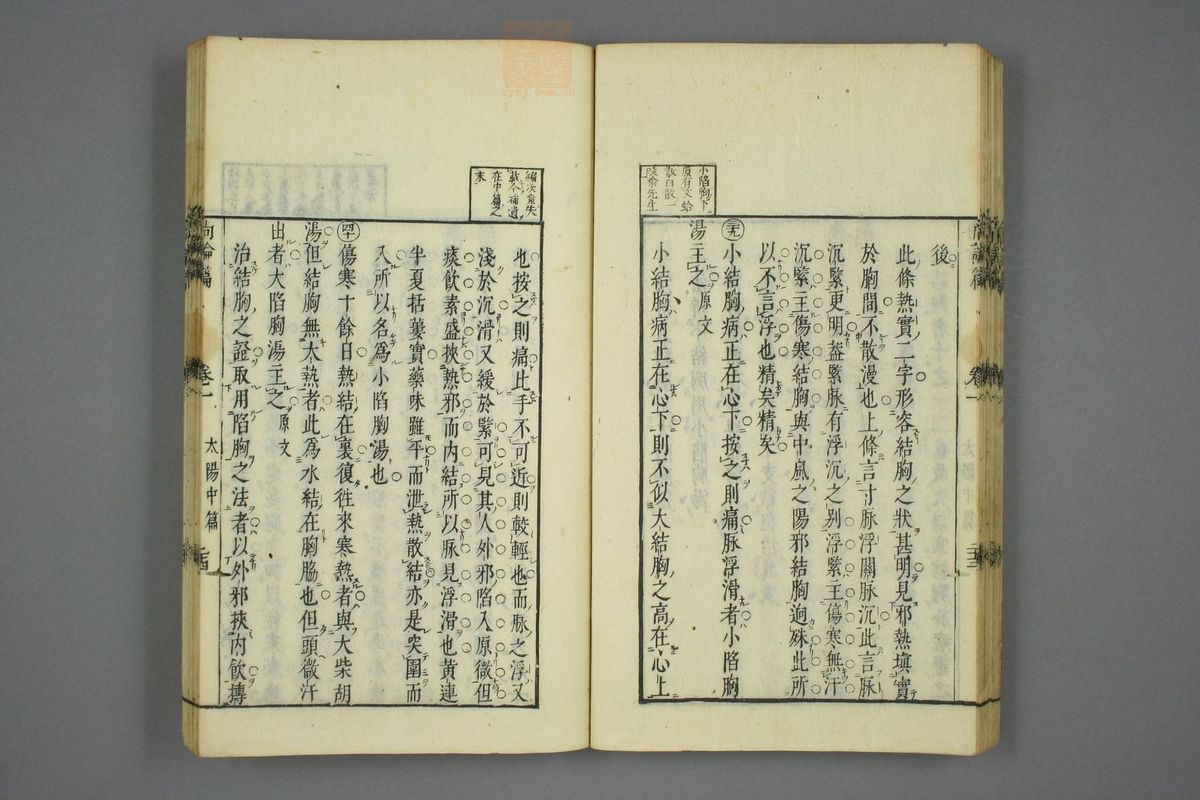 小陷胸下
原有文蛤
散白散一
後
此條熱實二字形容結胸之狀甚明見邪熱塡實
於胸間不散漫也上條言寸脉浮關脉沉此言脉
沉緊更明葢緊脉有浮沉之别浮緊主傷寒無汗
沉緊主傷寒結胸與中風之陽邪結胸迥殊此所
以不言浮也精矣精矣
小結胸病正在心下按之則痛脉浮滑者小陷胸
湯主之原文
小結胸病正在心下則不似大結胸之高在心上
尚論篇 卷一 太陽中篇
編次竟失
載今補遺
在中篇之
末
也按之則痛此手不可近則較輕也而脉之浮又
淺於沉滑又緩於緊可見其人外邪陷入原微但
痰飲素盛挾熱邪而内結所以脉見浮滑也黄連
半夏括蔞實藥味雖平而泄熱散結亦是突圍而
入所以名爲小陷胸湯也
傷寒十餘日熱結在裏復徃來寒熱者與大柴胡
湯但結胸無大熱者此爲水結在胸脇也但頭微汗
出者大陷胸湯主之原文
治結胸之證取用陷胸之法者以外邪挾内飲摶
尚論篇 卷一 太陽中篇
zysj.com.cn